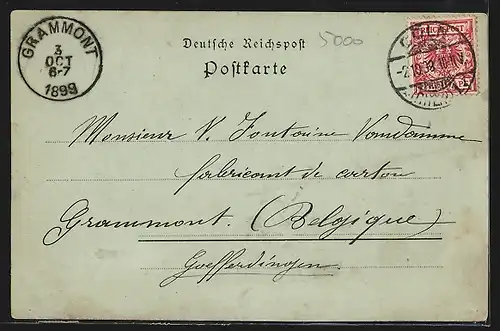 GRAMMONT
3
OCT
6-7
1899
Deutsche Reichspost
Postkarte
5000
Monsieur V. Fontaine Vandamme
fabricant de carton
Grammont. (Belgique)
Goefferdingen.